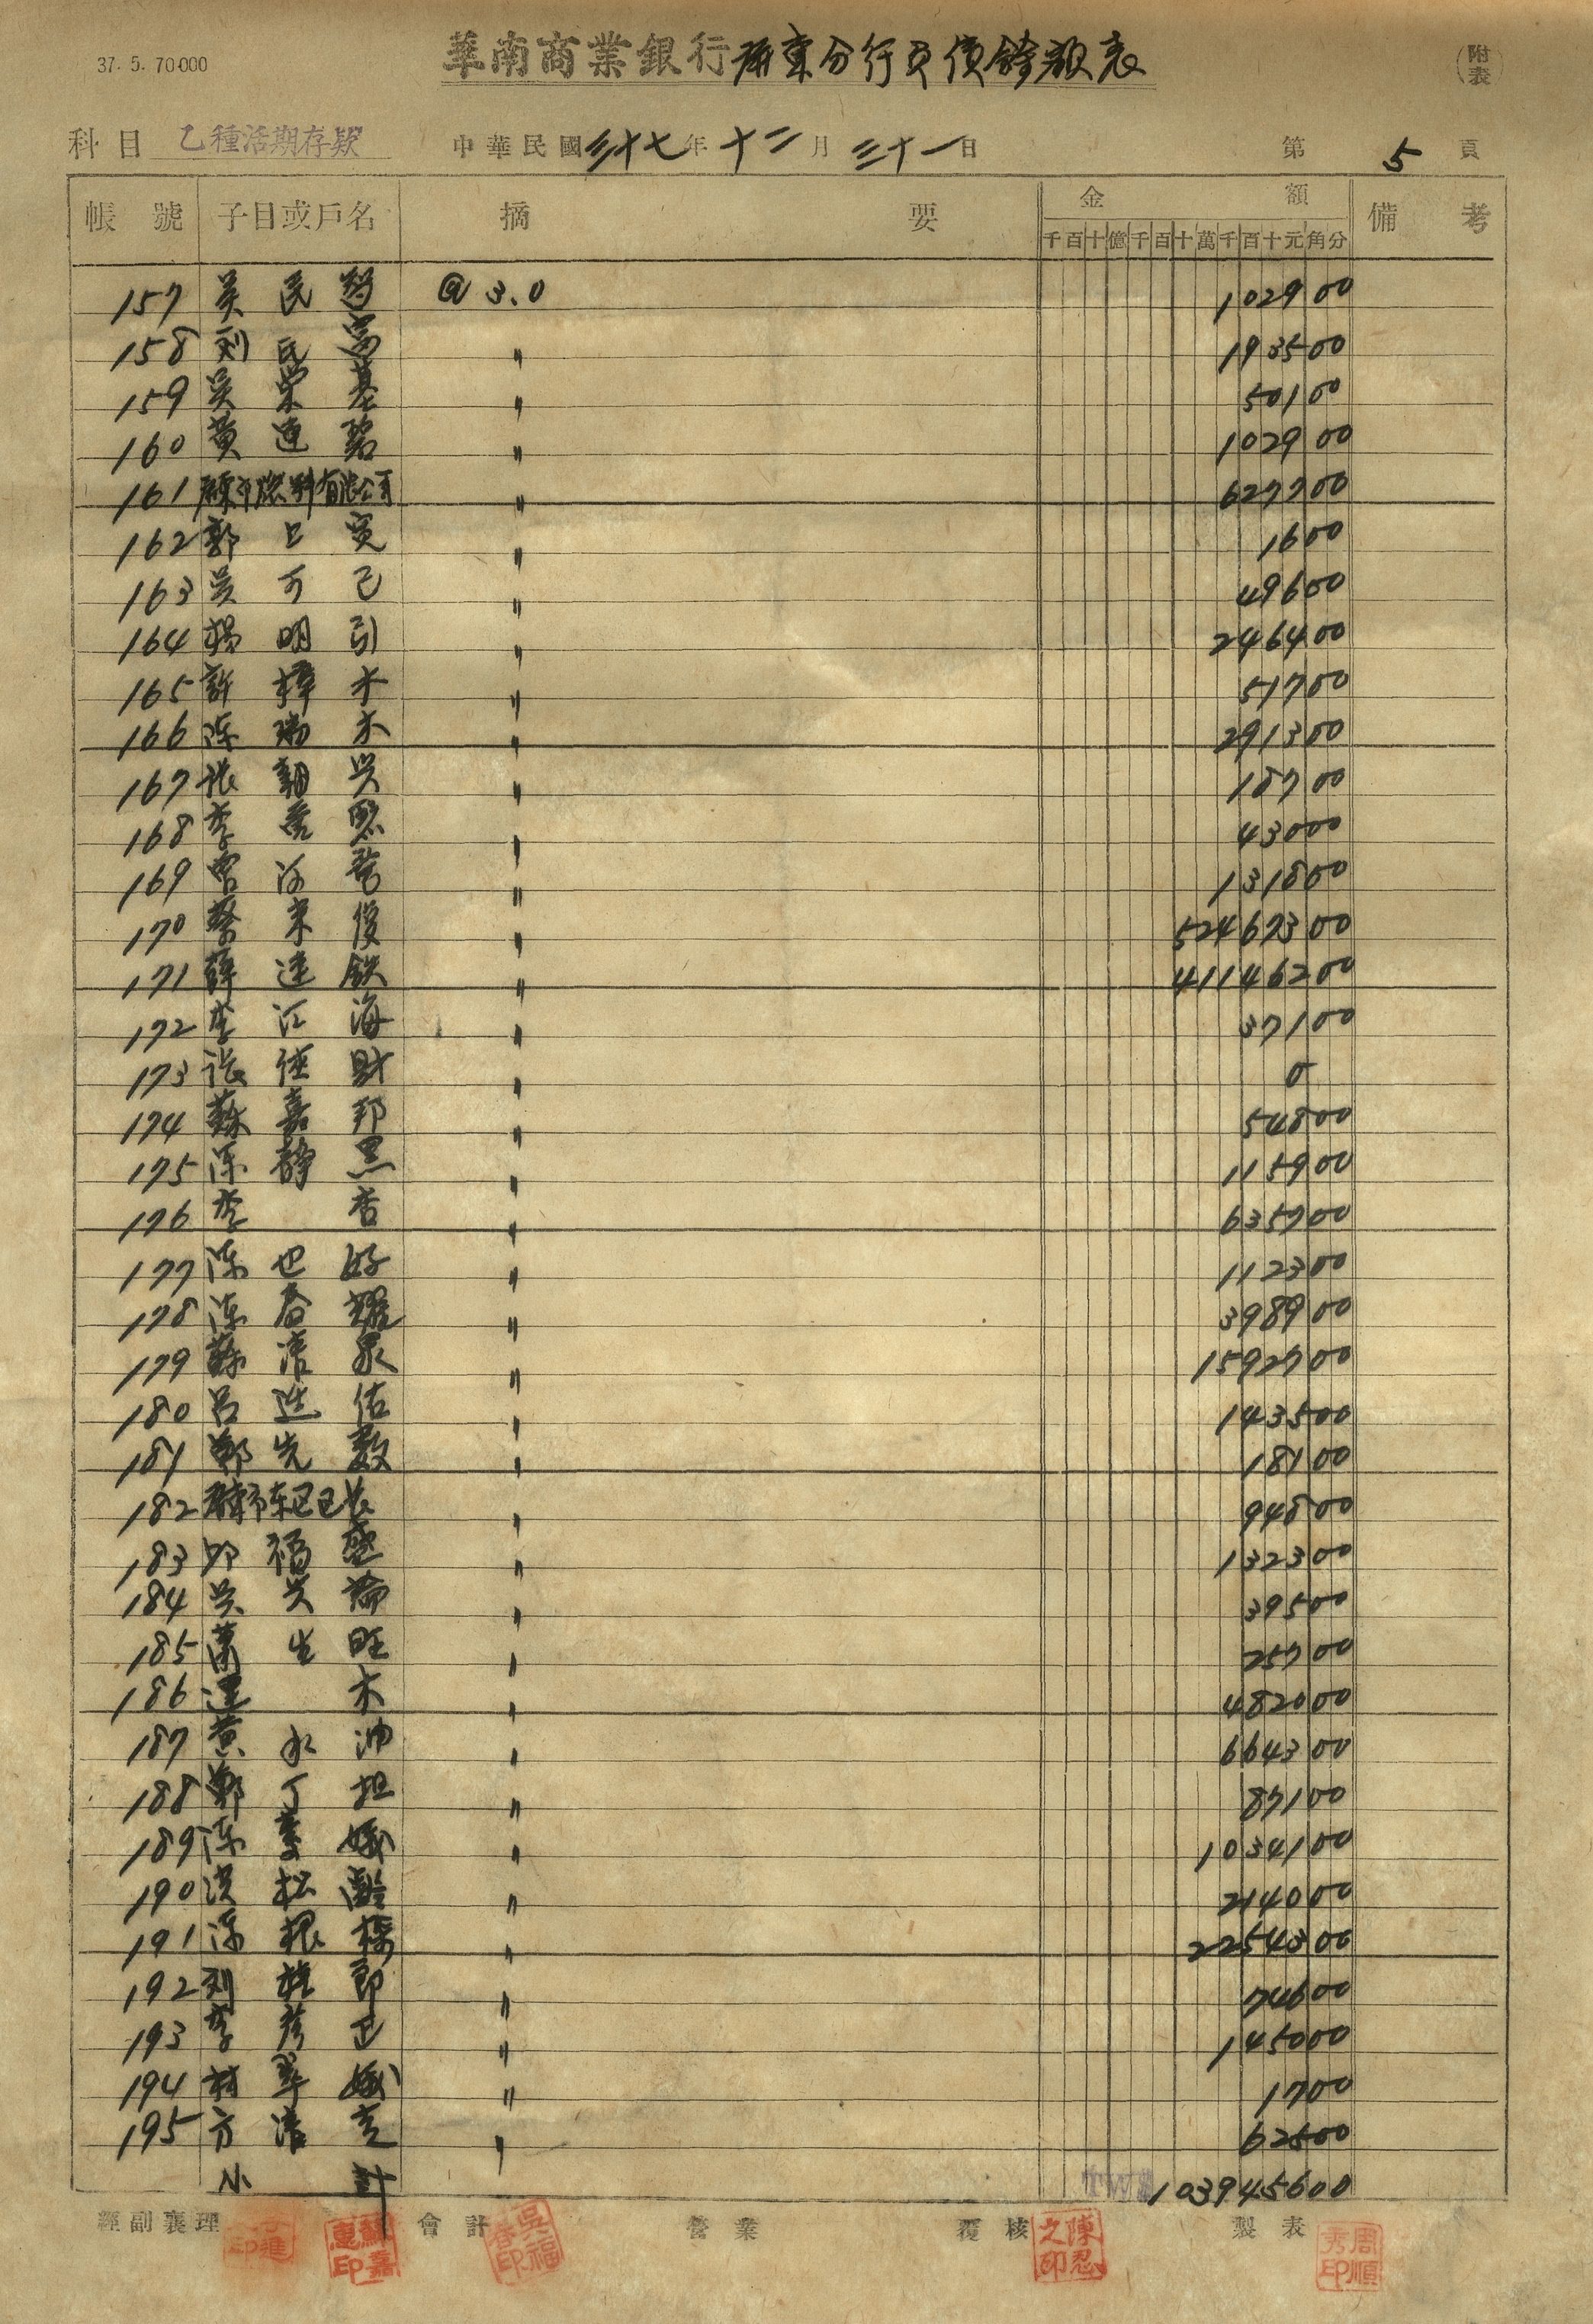 37. 5. 70000
華南商業銀行屏東分行負債餘額表
(附表)
科目 乙種活期存款 中華民國三十七年十二月三十一日 第 5 頁
帳號 子目或戶名 摘要 金額 備考
千百十億千百十萬千百十元角分
157 吴民智 @ 3.0 1029 00
158 刘民 〃 1935 00
159 吴荣基 〃 501 00
160 黃連碧 〃 1029 00
161 屏東市燃料有限公司 〃 6277 00
162 郭 〃 16 00
163 吴可己 〃 496 00
164 楊明引 〃 2464 00
165 許樟木 〃 517 00
166 陈瑞木 〃 2913 00
167 張朝兴 〃 187 00
168 李 〃 430 00
169 曾 〃 1318 00
170 蔡来俊 〃 524673 00
171 薛達鉄 〃 411462 00
172 李江海 〃 371 00
173 張 財 〃 0
174 蘇嘉邦 〃 548 00
175 陈静黑 〃 1159 00
176 李杏 〃 6357 00
177 陈也好 〃 1123 00
178 陈春耀 〃 3989 00
179 蘇清泉 〃 15927 00
180 呂 佑 〃 1435 00
181 鄭先数 〃 181 00
182 屏東市东区区长 〃 948 00
183 邱福盛 〃 1323 00
184 吴兴論 〃 395 00
185 生旺 〃 257 00
186 木 〃 4820 00
187 黄水沖 〃 6643 00
188 鄭丁担 〃 871 00
189 陈 娥 〃 10341 00
190 洪松齡 〃 2140 00
191 陈根 〃 22543 00
192 刘 郎 〃 746 00
193 李彦正 〃 1450 00
194 林翠娥 〃 17 00
195 方清 〃 625 00
小計 TW$ 1039456 00
經副襄理 會計 營業 覆核 製表
蘇嘉惠印 吳福春印 陳忍之印 周順秀印